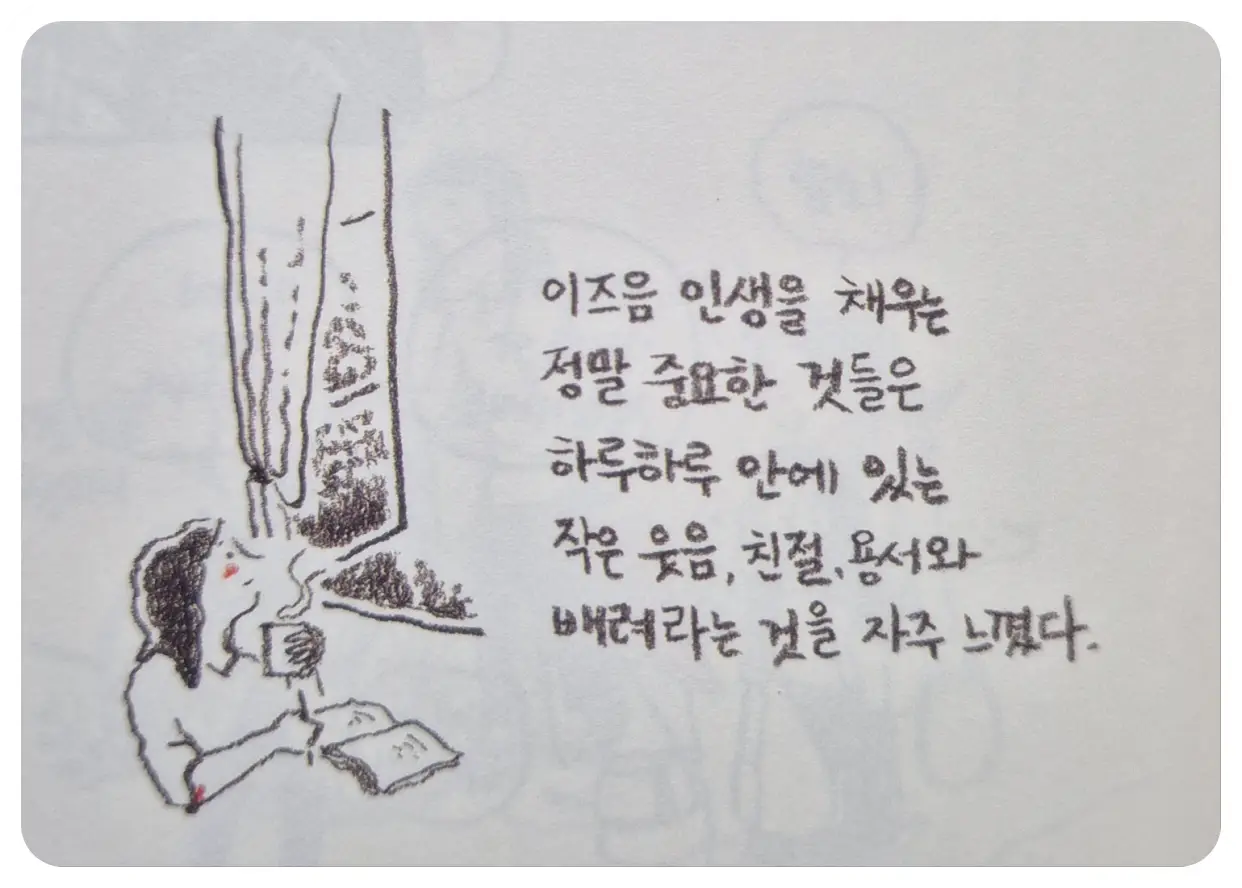 이즈음 인생을 채우는
정말 중요한 것들은
하루하루 안에 있는
작은 웃음, 친절, 용서와
배려라는 것을 자주 느꼈다.